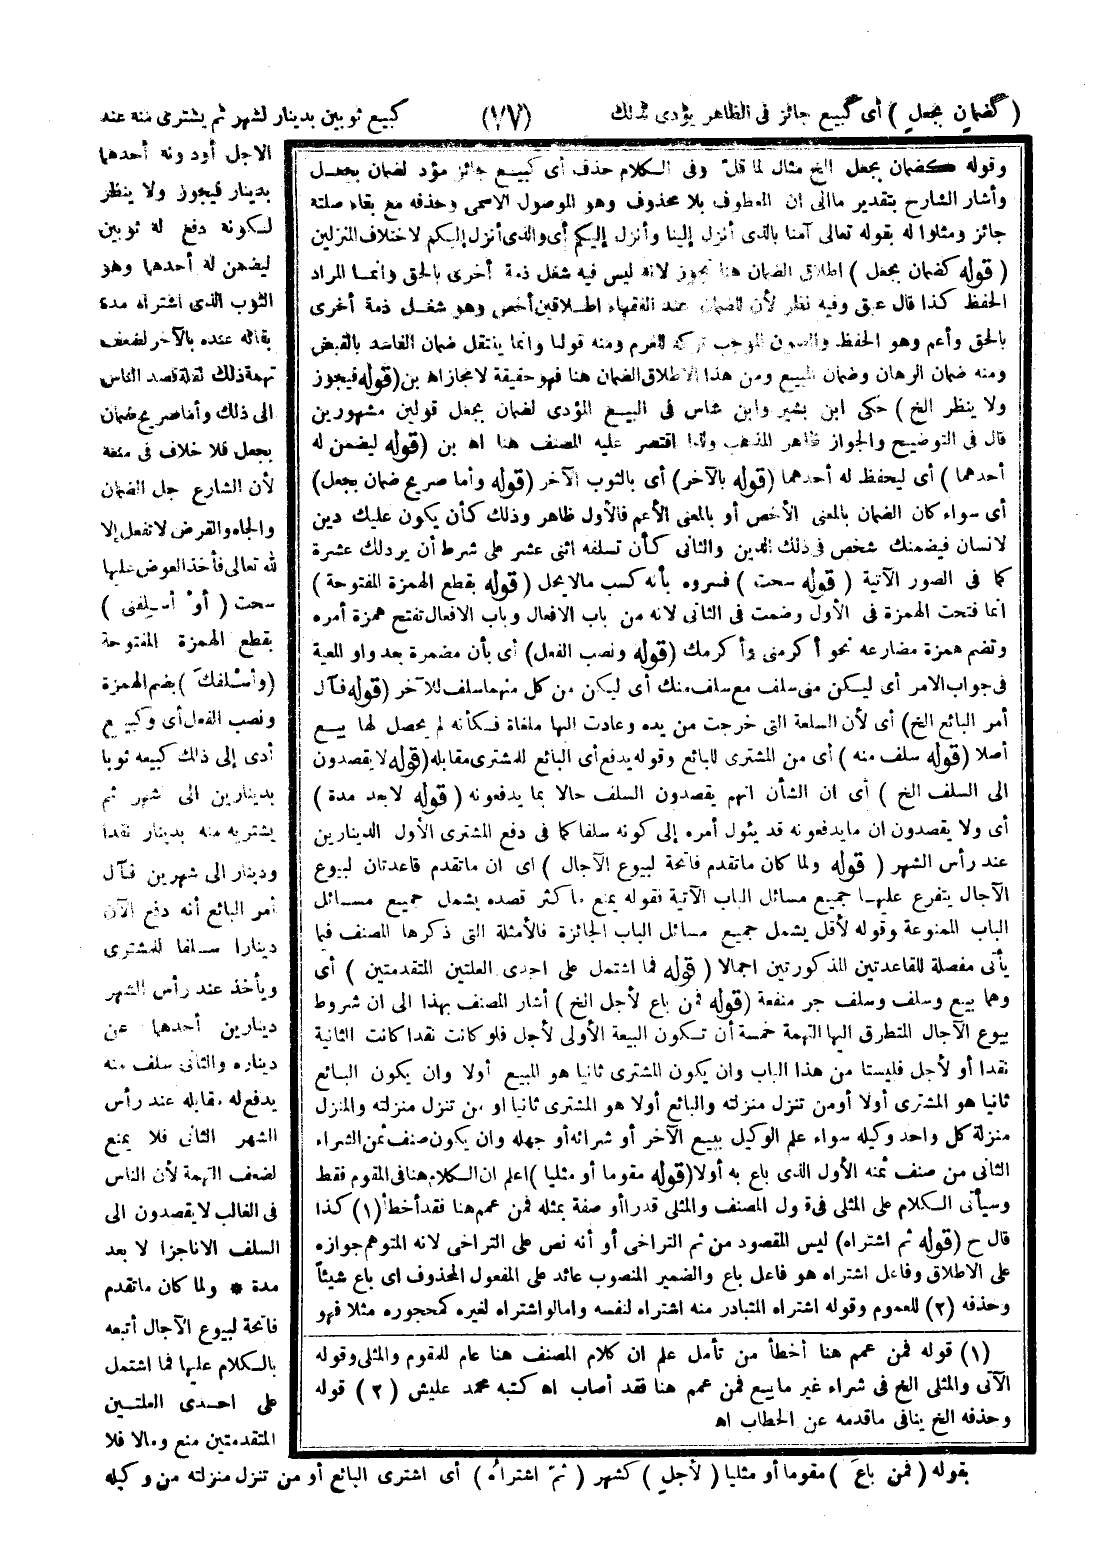 (كضمان بجعل) أى كبيع جائز فى الظاهر يؤدى لذلك (٧٧) كبيع ثوبين بدينار لشهر ثم يشترى منه عند
الاجل أو دونه أحدهما
بدينار فيجوز ولا ينظر
لكونه دفع له ثوبين
ليضمن له أحدهما وهو
الثوب الذى اشتراه مدة
بقائه عنده بالآخر لضعف
تهمة ذلك لقلة قصد الناس
الى ذلك وأما صريح ضمان
بجعل فلا خلاف فى منعه
لأن الشارع جل الضمان
والجاه والقرض لا تفعل إلا
لله تعالى فأخذ العوض عليها
سحت (أو أسلفنى)
بقطع الهمزة المفتوحة
(وأسلفك) بضم الهمزة
ونصب الفعل أى وكبيع
أدى إلى ذلك كبيعه ثوبا
بدينارين الى شهر ثم
يشتريه منه بدينار نقدا
ودينار الى شهرين فآل
أمر البائع أنه دفع الآن
دينارا سلفا للمشترى
ويأخذ عند رأس الشهر
دينارين أحدهما عن
ديناره والثانى سلف منه
يدفع له مقابله عند رأس
الشهر الثانى فلا يمنع
لضعف التهمة لأن الناس
فى الغالب لا يقصدون الى
السلف الا ناجزا لا بعد
مدة * ولما كان ما تقدم
فاتحة لبيوع الآجال أتبعه
بالكلام عليها فما اشتمل
على احدى العلتين
المتقدمتين منع ومالا فلا
بقوله (فمن باع) مقوما أو مثليا (لأجل) كشهر (ثم اشتراه) أى اشترى البائع أو من تنزل منزلته من وكيله
وقوله كضمان بجعل الخ مثال لما قل وفى الكلام حذف أى كبيع جائز مؤد لضمان بجعل
وأشار الشارح بتقدير ما الى ان المعطوف بلا محذوف وهو الموصول الاسمى وحذفه مع بقاء صلته
جائز ومثلوا له بقوله تعالى آمنا بالذى أنزل إلينا وأنزل إليكم أى والذى أنزل إليكم لاختلاف المنزلين
(قوله كضمان بجعل) اطلاق الضمان هنا تجوز لانه ليس فيه شغل ذمة أخرى بالحق وانما المراد
الحفظ كذا قال عبق وفيه نظر لأن للضمان عند الفقهاء اطلاقين أخص وهو شغل ذمة أخرى
بالحق وأعم وهو الحفظ والصون الموجب تركه للغرم ومنه قولنا وانما ينتقل ضمان الفاسد بالقبض
ومنه ضمان الرهان وضمان المبيع ومن هذا الاطلاق الضمان هنا فهو حقيقة لا مجاز اه بن (قوله فيجوز
ولا ينظر الخ) حكى ابن بشير وابن شاس فى البيع المؤدى لضمان بجعل قولين مشهورين
قال فى التوضيح والجواز ظاهر المذهب ولذا اقتصر عليه المصنف هنا اه بن (قوله ليضمن له
أحدهما) أى ليحفظ له أحدهما (قوله بالآخر) أى بالثوب الآخر (قوله وأما صريح ضمان بجعل)
أى سواء كان الضمان بالمعنى الأخص أو بالمعنى الأعم فالأول ظاهر وذلك كأن يكون عليك دين
لانسان فيضمنك شخص فى ذلك الدين والثانى كأن تسلفه اثنى عشر على شرط أن يرد لك عشرة
كما فى الصور الآتية (قوله سحت) فسروه بأنه كسب مالا يحل (قوله بقطع الهمزة المفتوحة)
انما فتحت الهمزة فى الأول وضمت فى الثانى لانه من باب الافعال وباب الافعال تفتح همزة أمره
وتضم همزة مضارعه نحو أكرمنى وأكرمك (قوله ونصب الفعل) أى بأن مضمرة بعد واو المعية
فى جواب الامر أى ليكن منى سلف مع سلف منك أى ليكن من كل منهما سلف للآخر (قوله فآل
أمر البائع الخ) أى لأن السلعة التى خرجت من يده وعادت اليها ملغاة فكأنه لم يحصل لها بيع
أصلا (قوله سلف منه) أى من المشترى للبائع وقوله يدفع أى البائع للمشترى مقابله (قوله لا يقصدون
الى السلف الخ) أى ان الشأن انهم يقصدون السلف حالا بما يدفعونه (قوله لا بعد مدة)
أى ولا يقصدون ان ما يدفعونه قد يئول أمره إلى كونه سلفا كما فى دفع المشترى الأول الدينارين
عند رأس الشهر (قوله ولما كان ما تقدم فاتحة لبيوع الآجال) اى ان ما تقدم قاعدتان لبيوع
الآجال يتفرع عليهما جميع مسائل الباب الآتية فقوله يمنع ما كثر قصده يشمل جميع مسائل
الباب الممنوعة وقوله لأقل يشمل جميع مسائل الباب الجائزة فالأمثلة التى ذكرها المصنف فيما
يأتى مفصلة للقاعدتين المذكورتين اجمالا (قوله فما اشتمل على احدى العلتين المتقدمتين) أى
وهما بيع وسلف وسلف جر منفعة (قوله فمن باع لأجل الخ) أشار المصنف بهذا الى ان شروط
بيوع الآجال المتطرق اليها التهمة خمسة أن تكون البيعة الأولى لأجل فلو كانت نقدا كانت الثانية
نقدا أو لأجل فليستا من هذا الباب وان يكون المشترى ثانيا هو المبيع أولا وان يكون البائع
ثانيا هو المشترى أولا أو من تنزل منزلته والبائع أولا هو المشترى ثانيا او من تنزل منزلته والمنزل
منزلة كل واحد وكيله سواء علم الوكيل ببيع الآخر أو شرائه أو جهله وان يكون صنف ثمن الشراء
الثانى من صنف ثمنه الأول الذى باع به أولا (قوله مقوما أو مثليا) اعلم ان الكلام هنا فى المقوم فقط
وسيأتى الكلام على المثلى فى قول المصنف والمثلى قدرا أو صفة بمثله فمن عمم هنا فقد أخطأ (١) كذا
قال ح (قوله ثم اشتراه) ليس المقصود من ثم التراخى أو أنه نص على التراخى لانه المتوهم جوازه
على الاطلاق وفاعل اشتراه هو فاعل باع والضمير المنصوب عائد على المفعول المحذوف اى باع شيئاً
وحذفه (٢) للعموم وقوله اشتراه المتبادر منه اشتراه لنفسه واما لو اشتراه لغيره كمحجوره مثلا فهو
(١) قوله فمن عمم هنا أخطأ من تأمل علم ان كلام المصنف هنا عام للمقوم والمثلى وقوله
الآتى والمثلى الخ فى شراء غير ما بيع فمن عمم هنا فقد أصاب اه كتبه محمد عليش (٢) قوله
وحذفه الخ ينافى ما قدمه عن الحطاب اه